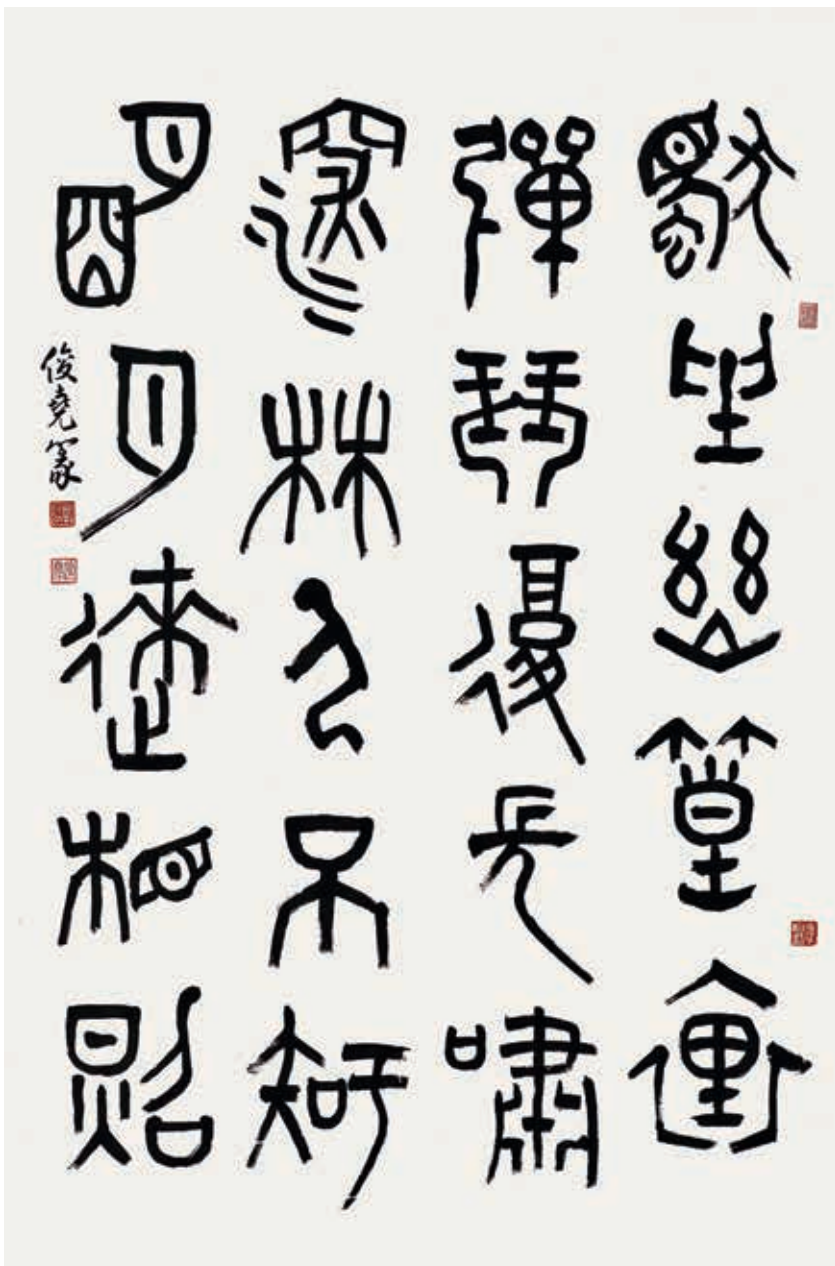 獨坐幽篁裏
彈琴復長嘯
深林人不知
明月來相照
俊堯篆